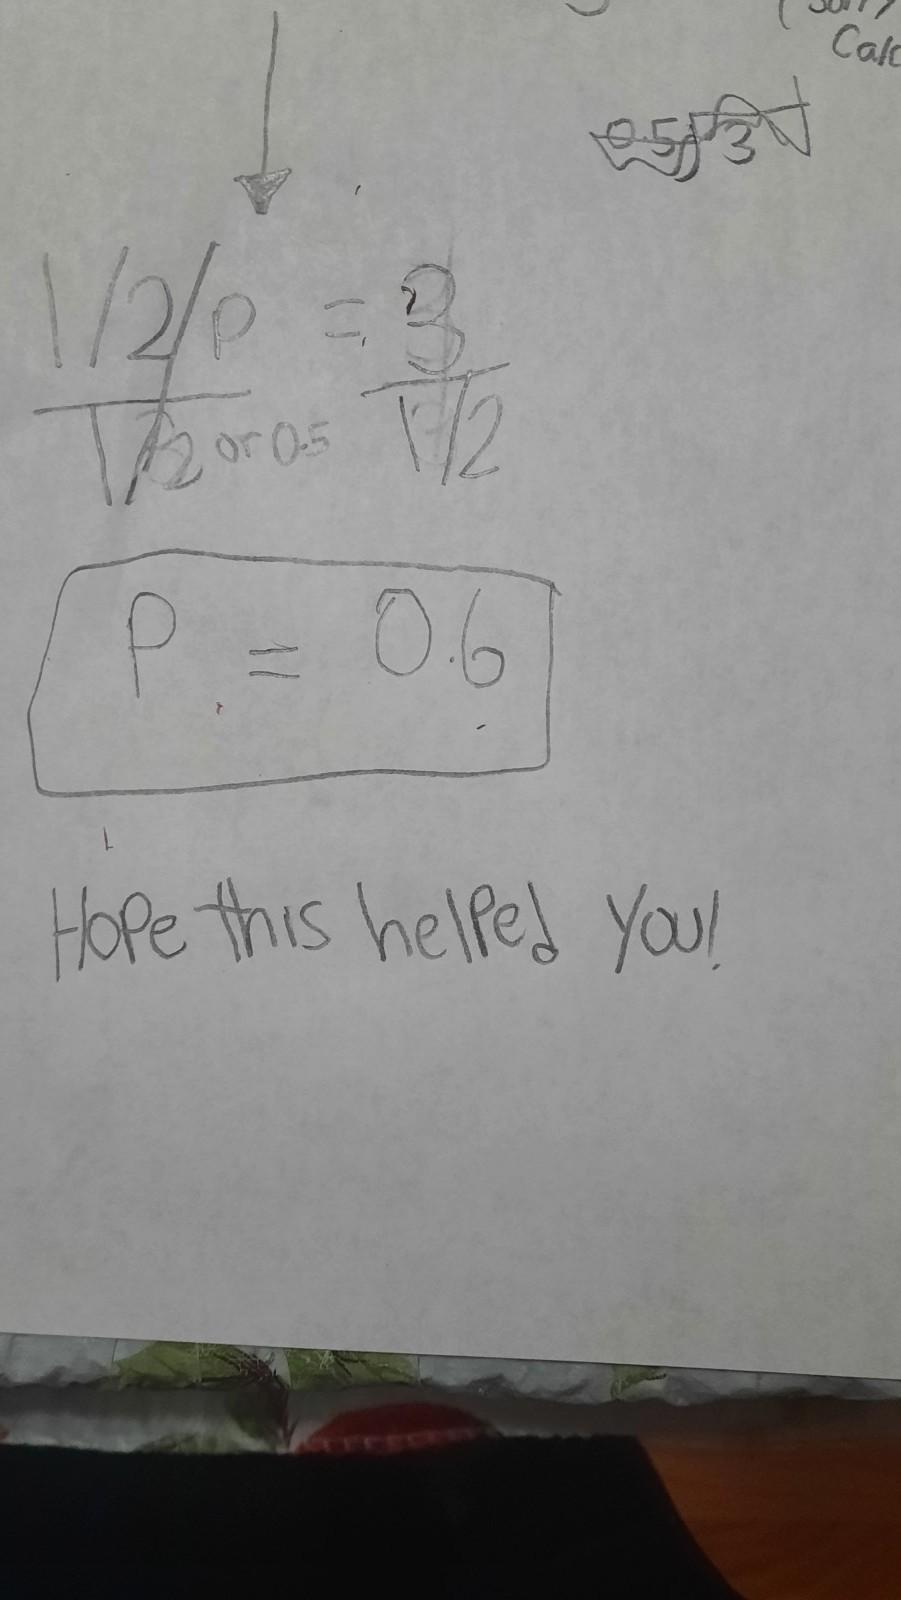 Calc
0.5 3
1/2/p = 3
1/2 or 0.5 1/2
P = 0.6
Hope this helped You!